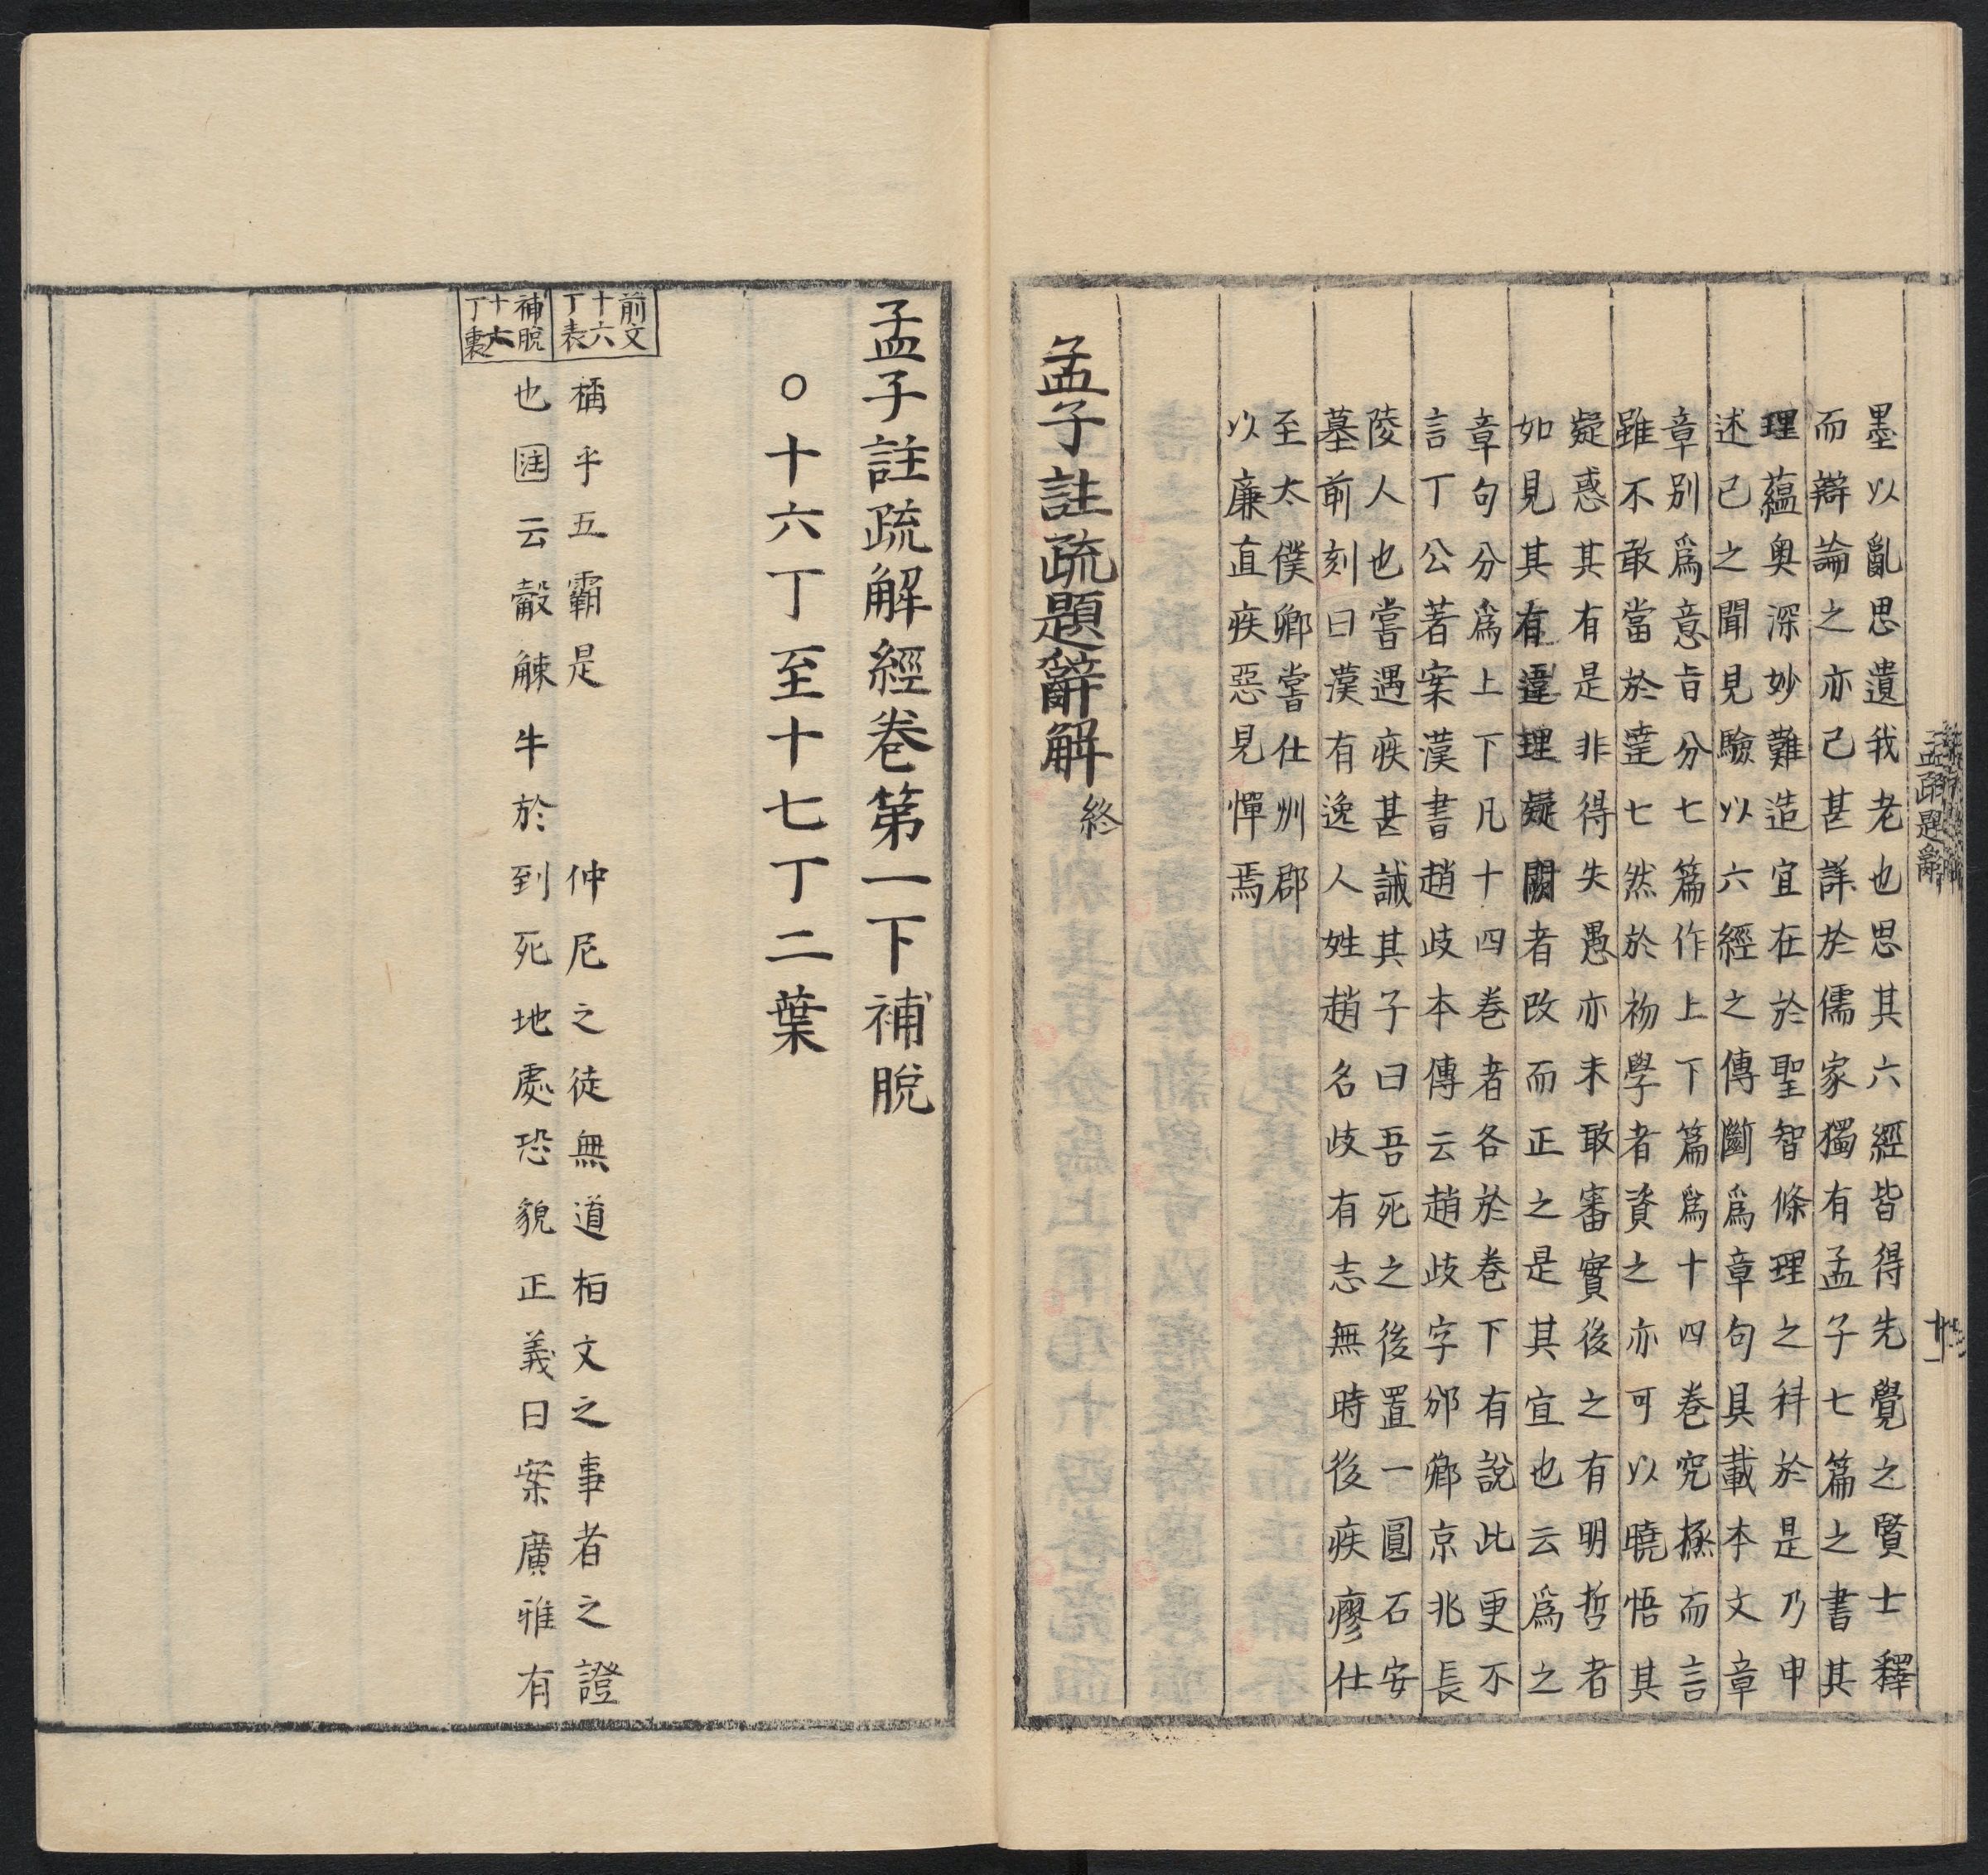 墨以亂思遺我老也思其六經皆得先覺之賢士釋
而辯論之亦已甚詳於儒家獨有孟子七篇之書其
理蘊奧深妙難造宜在於聖智條理之科於是乃申
述己之聞見驗以六經之傳斷爲章句具載本文章
章別爲意旨分七篇作上下篇爲十四卷究極而言
雖不敢當於達七然於初學者資之亦可以曉悟其
疑惑其有是非得失愚亦未敢審實後之有明哲者
如見其有違理疑闕者改而正之是其宜也云爲之
章句分爲上下凡十四卷者各於卷下有說此更不
言丁公著案漢書趙歧本傳云趙歧字邠卿京兆長
陵人也嘗遇疾甚誡其子曰吾死之後置一圓石安
墓前刻曰漢有逸人姓趙名歧有志無時後疾瘳仕
至太僕卿嘗仕州郡
以廉直疾惡見憚焉
孟子註疏題辭解終
孟疏題辭
孟子註疏解經卷第一下補脫
○十六丁至十七丁二葉
前文十六丁表
橘乎五霸是 仲尼之徒無道桓文之事者之證
補脫十六丁裏
也注云觳觫牛於到死地處恐貌正義曰案廣雅有